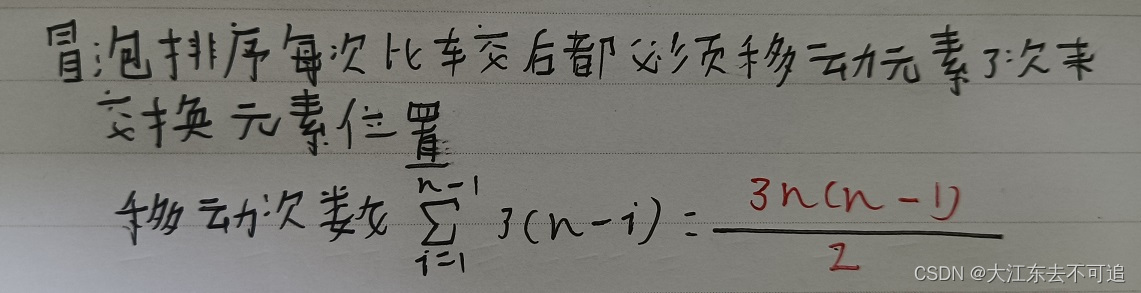 冒泡排序每次比较后都必须移动元素3次来
交换元素位置
移动次数 \sum_{i=1}^{n-1} 3(n-i) = \frac{3n(n-1)}{2}
CSDN @大江东去不可追